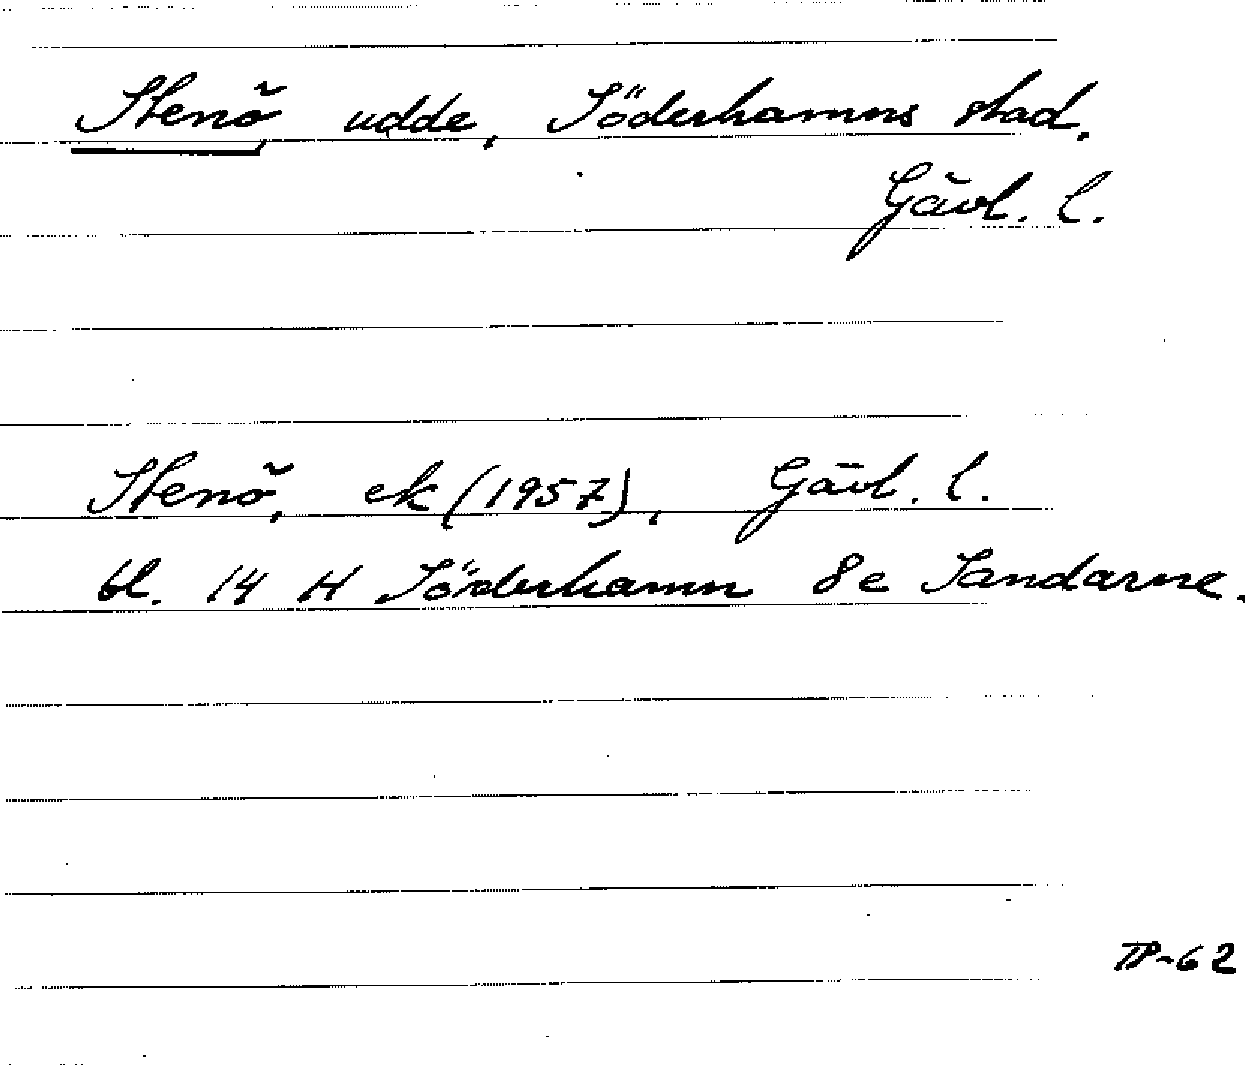 Stenö, udde, Söderhamns stad,
Gävl. l.
Stenö, ek (1957), Gävl. l.
bl. 14 H Söderhamn 8e Sandarne.
TP-62